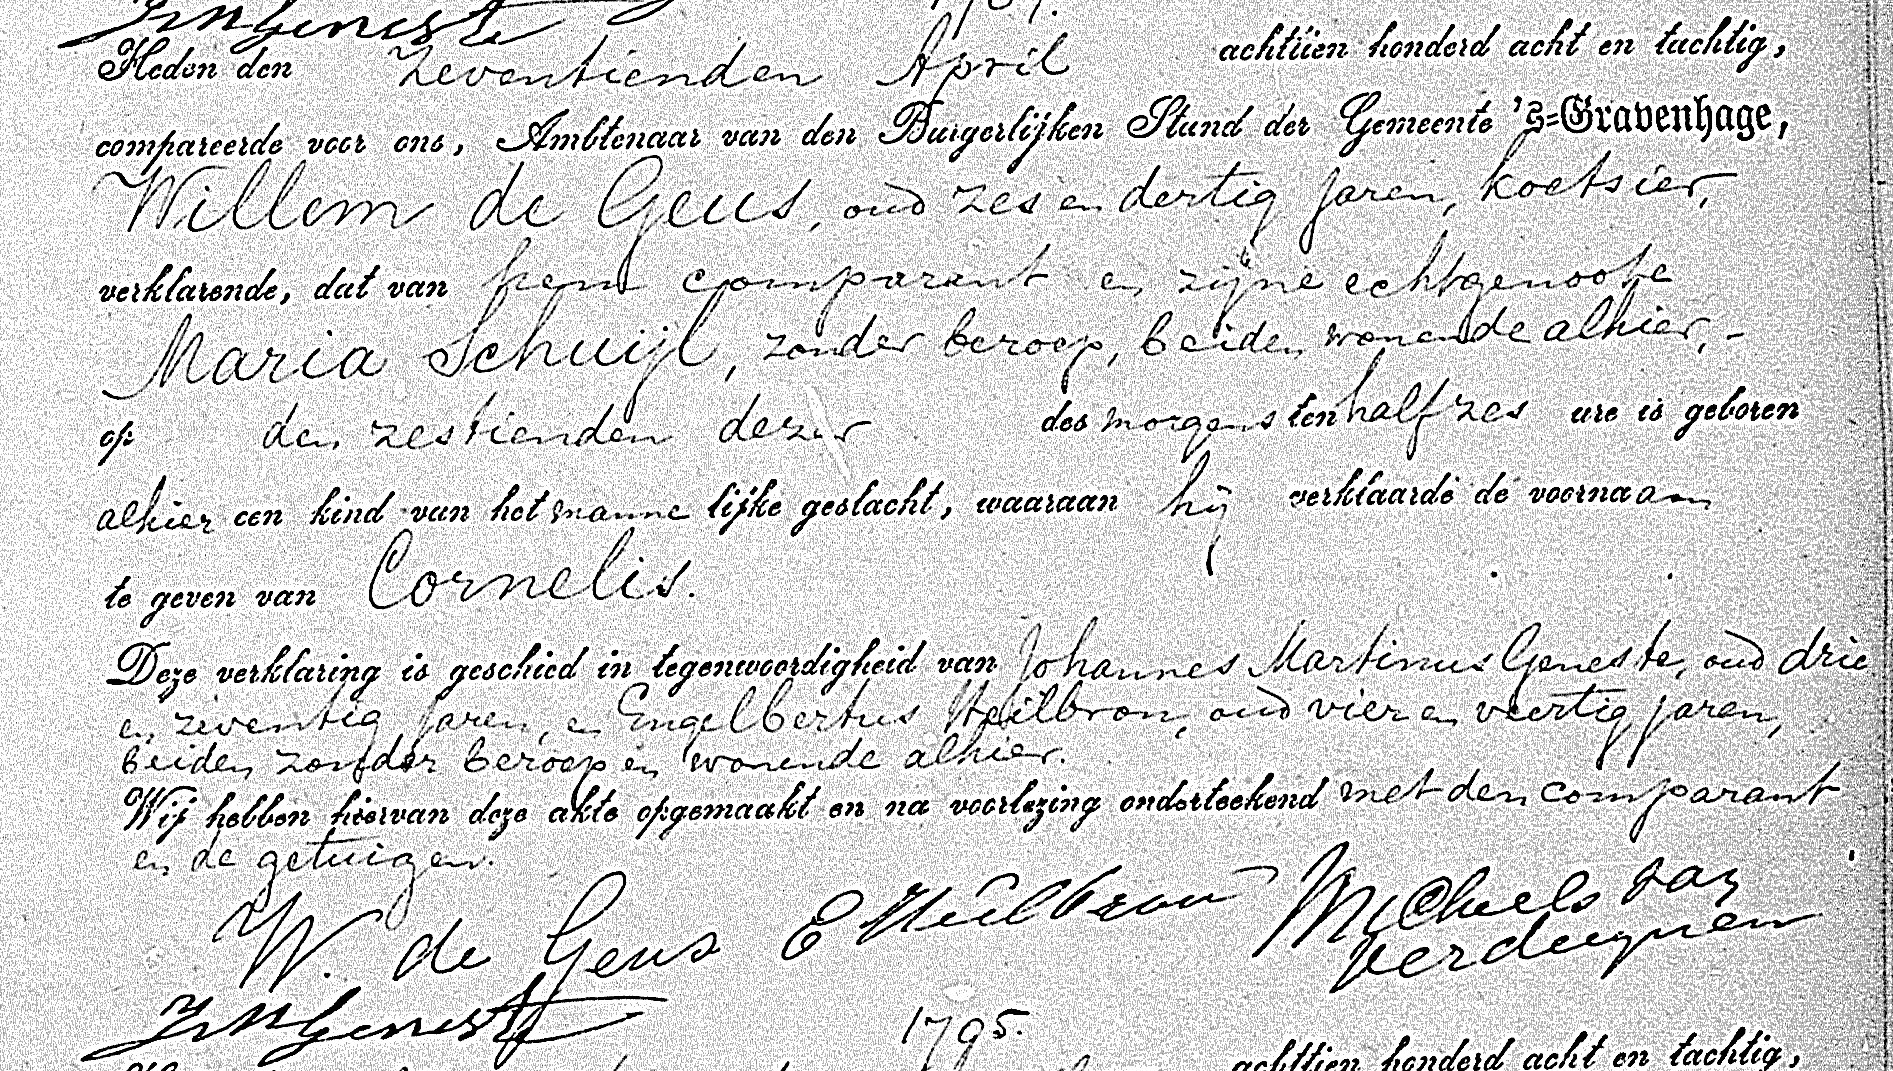 JMGeneste
Heden den Zeventienden April achttien honderd acht en tachtig,
compareerde voor ons, Ambtenaar van den Burgerlijken Stand der Gemeente 's-Gravenhage,
Willem de Geus, oud zes en dertig jaren, koetsier,
verklarende, dat van hem comparant en zijne echtgenoote
Maria Schuijl, zonder beroep, beiden wonende alhier, -
op den zestienden dezer des morgens ten half zes ure is geboren
alhier een kind van het manne lijke geslacht, waaraan hij verklaarde de voornaam
te geven van Cornelis.
Deze verklaring is geschied in tegenwoordigheid van Johannes Martinus Geneste, oud drie
en zeventig jaren, en Engelbertus Heilbron, oud vier en veertig jaren,
beiden zonder beroep en wonende alhier.
Wij hebben hiervan deze akte opgemaakt en na voorlezing onderteekend met den comparant
en de getuigen.
W. de Geus E Heilbron Michiels van
Verduynen
JMGeneste
1795.
achttien honderd acht en tachtig,